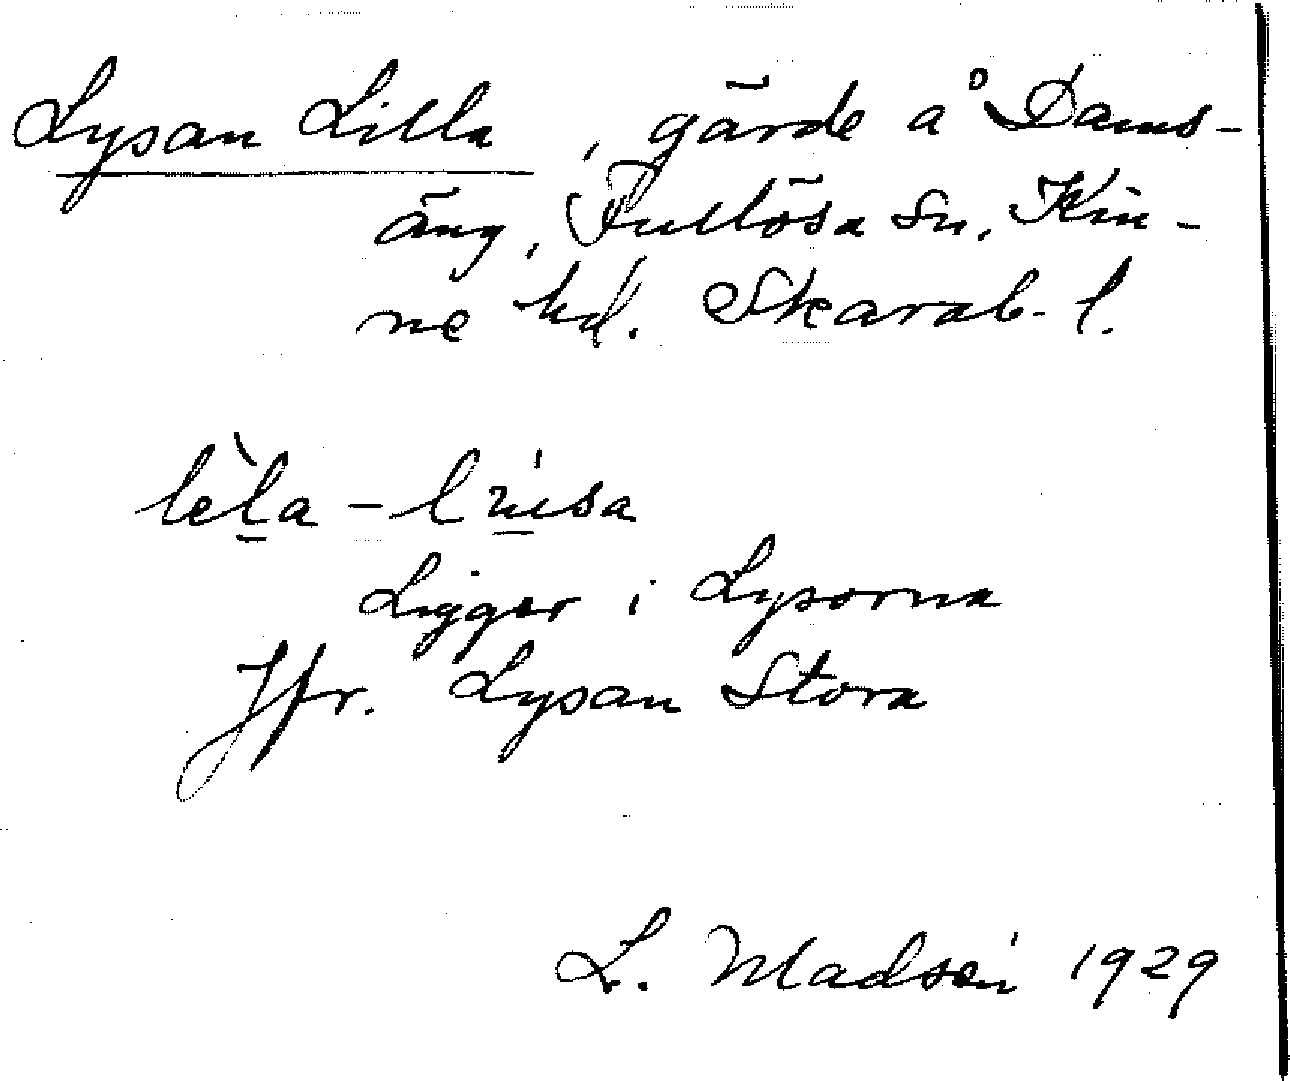 Lysan Lilla, gärde å Dams-
äng, Fullösa sn, Kin-
ne hd. Skarab. l.
lèla - lýsa
Ligger i Lysorna
Jfr. Lysan Stora
L. Madsén 1929